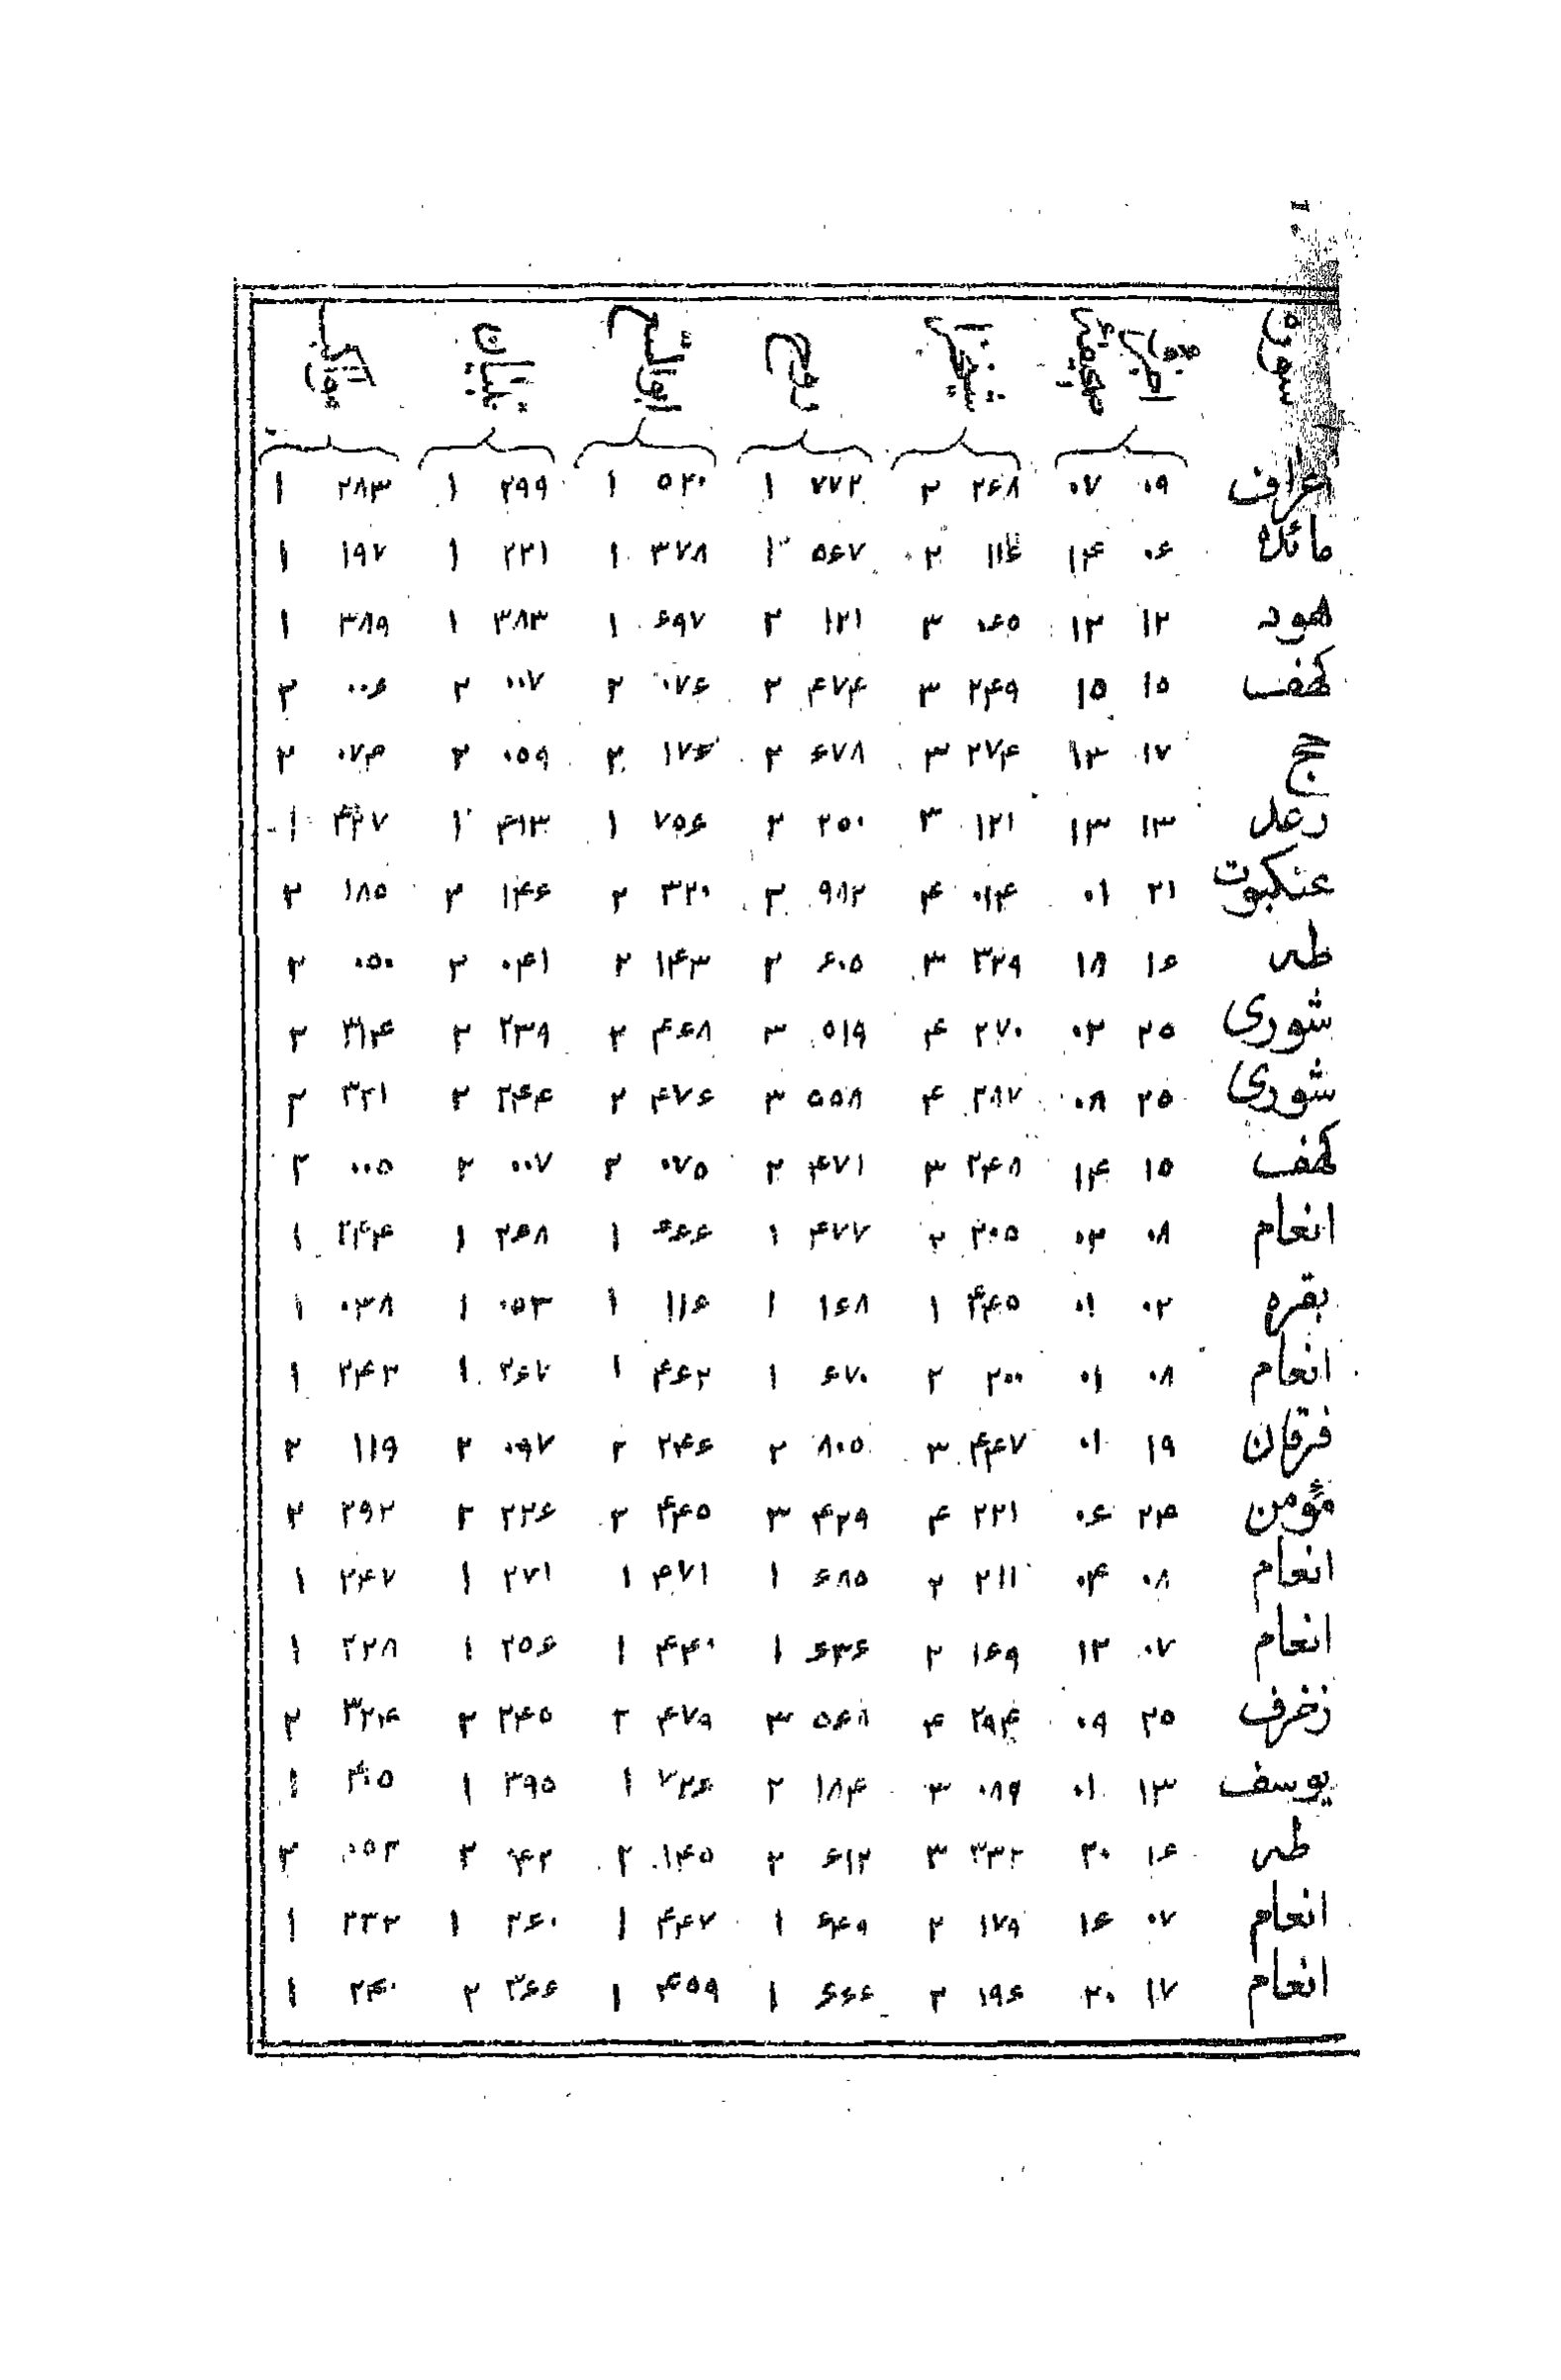 سوره
اعراف ۰۹ ۰۷ ۲۶۸ ۲ ۷۷۲ ۱ ۵۲۰ ۱ ۲۹۹ ۱ ۲۸۳ ۱
مائده ۰۶ ۱۴ ۱۱۶ ۲ ۵۶۷ ۱ ۳۷۸ ۱ ۲۲۱ ۱ ۱۹۷ ۱
هود ۱۲ ۱۲ ۰۶۵ ۳ ۱۲۱ ۲ ۶۹۷ ۱ ۳۸۳ ۱ ۳۸۹ ۱
کهف ۱۵ ۱۵ ۲۴۹ ۳ ۴۷۴ ۲ ۰۷۶ ۲ ۰۰۷ ۲ ۰۰۶ ۲
حج ۱۷ ۱۳ ۲۷۴ ۳ ۶۷۸ ۲ ۱۷۶ ۲ ۰۵۹ ۲ ۰۷۴ ۲
رعد ۱۳ ۱۳ ۱۲۱ ۳ ۲۵۰ ۲ ۷۵۶ ۱ ۴۱۳ ۱ ۴۲۷ ۱
عنکبوت ۲۱ ۰۱ ۰۱۴ ۴ ۹۸۲ ۲ ۳۲۰ ۲ ۱۴۶ ۲ ۱۸۵ ۲
طه ۱۶ ۱۸ ۳۲۹ ۳ ۶۰۵ ۲ ۱۴۳ ۲ ۰۴۱ ۲ ۰۵۰ ۲
شوری ۲۵ ۰۳ ۲۷۰ ۴ ۵۱۹ ۳ ۴۶۸ ۲ ۲۳۹ ۲ ۳۱۴ ۲
شوری ۲۵ ۰۸ ۲۸۷ ۴ ۵۵۸ ۳ ۴۷۶ ۲ ۲۴۴ ۲ ۳۲۱ ۲
کهف ۱۵ ۱۴ ۲۴۸ ۳ ۴۷۱ ۲ ۰۷۵ ۲ ۰۰۷ ۲ ۰۰۵ ۲
انعام ۰۸ ۰۳ ۲۰۵ ۲ ۴۷۷ ۱ ۴۶۶ ۱ ۲۶۸ ۱ ۲۴۴ ۱
بقره ۰۲ ۰۱ ۴۴۵ ۱ ۱۶۸ ۱ ۱۱۶ ۱ ۰۵۳ ۱ ۰۳۸ ۱
انعام ۰۸ ۰۱ ۲۰۰ ۲ ۶۷۰ ۱ ۴۶۲ ۱ ۲۶۷ ۱ ۲۴۲ ۱
فرقان ۱۹ ۰۱ ۴۴۷ ۳ ۸۰۵ ۲ ۲۴۶ ۲ ۰۹۷ ۲ ۱۱۹ ۲
مؤمن ۲۴ ۰۶ ۲۲۱ ۴ ۴۲۹ ۳ ۴۴۵ ۲ ۲۲۶ ۲ ۲۹۲ ۲
انعام ۰۸ ۰۴ ۲۱۱ ۲ ۶۸۵ ۱ ۴۷۱ ۱ ۲۷۱ ۱ ۲۴۷ ۱
انعام ۰۷ ۱۲ ۱۶۹ ۲ ۶۳۶ ۱ ۴۴۰ ۱ ۲۵۶ ۱ ۲۲۸ ۱
زخرف ۲۵ ۰۹ ۲۹۴ ۴ ۵۶۸ ۳ ۴۷۹ ۲ ۲۴۵ ۲ ۳۲۴ ۲
یوسف ۱۳ ۰۱ ۰۸۹ ۳ ۱۸۴ ۲ ۷۲۶ ۱ ۳۹۵ ۱ ۴۰۵ ۱
طه ۱۶ ۲۰ ۳۳۲ ۳ ۶۱۲ ۲ ۱۴۵ ۲ ۰۴۲ ۲ ۰۵۲ ۲
انعام ۰۷ ۱۶ ۱۷۹ ۲ ۶۴۹ ۱ ۴۴۷ ۱ ۲۶۰ ۱ ۲۳۲ ۱
انعام ۱۷ ۲۰ ۱۹۶ ۲ ۶۶۶ ۱ ۴۵۹ ۱ ۳۶۶ ۲ ۲۴۰ ۱